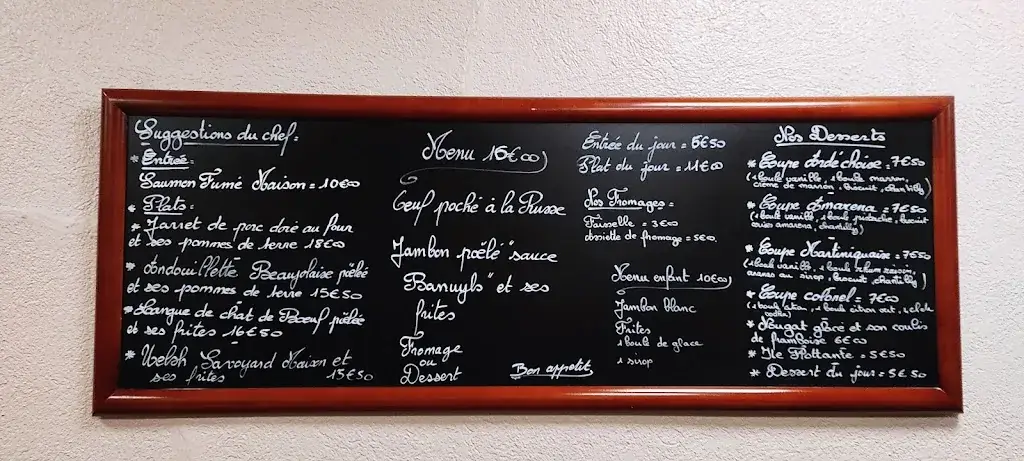 Suggestions du chef =
* Entrée =
Saumon Fumé Maison = 10€00
* Plats =
* Jarret de porc doré au four
et ses pommes de terre 18€00
* Andouillette Beaujolaise poêlée
et ses pommes de terre 15€50
* Langue de chat de Boeuf poêlée
et ses frites 16€50
* Welsh Savoyard Maison et
ses frites 15€50
Menu 16€00
Oeuf poché à la Russe
Jambon poêlé "sauce
Banuyls" et ses
frites
Fromage
ou
Dessert
Bon appetit
Entrée du jour = 6€50
Plat du jour = 11€00
Nos Fromages =
Faisselle = 3€00
Assiette de fromage = 5€00.
Menu enfant 10€00
Jambon blanc
Frites
1 boule de glace
1 sirop
Nos Desserts
* Coupe Ardéchoise = 7€50
(1 boule vanille, 1 boule marron,
crème de marron, biscuit, chantilly)
* Coupe Amarena = 7€50
(1 boule vanille, 1 boule pistache, biscuit
amarena, chantilly)
* Coupe Martiniquaise = 7€50
(1 boule vanille, 1 boule rhum raisin,
ananas au sirop, biscuit, chantilly)
* Coupe colonel = 7€00
(1 boule citron, 1 boule citron vert,
vodka)
* Nougat glacé et son coulis
de framboise 6€00
* Ile Flottante = 5€50
* Dessert du jour = 5€50